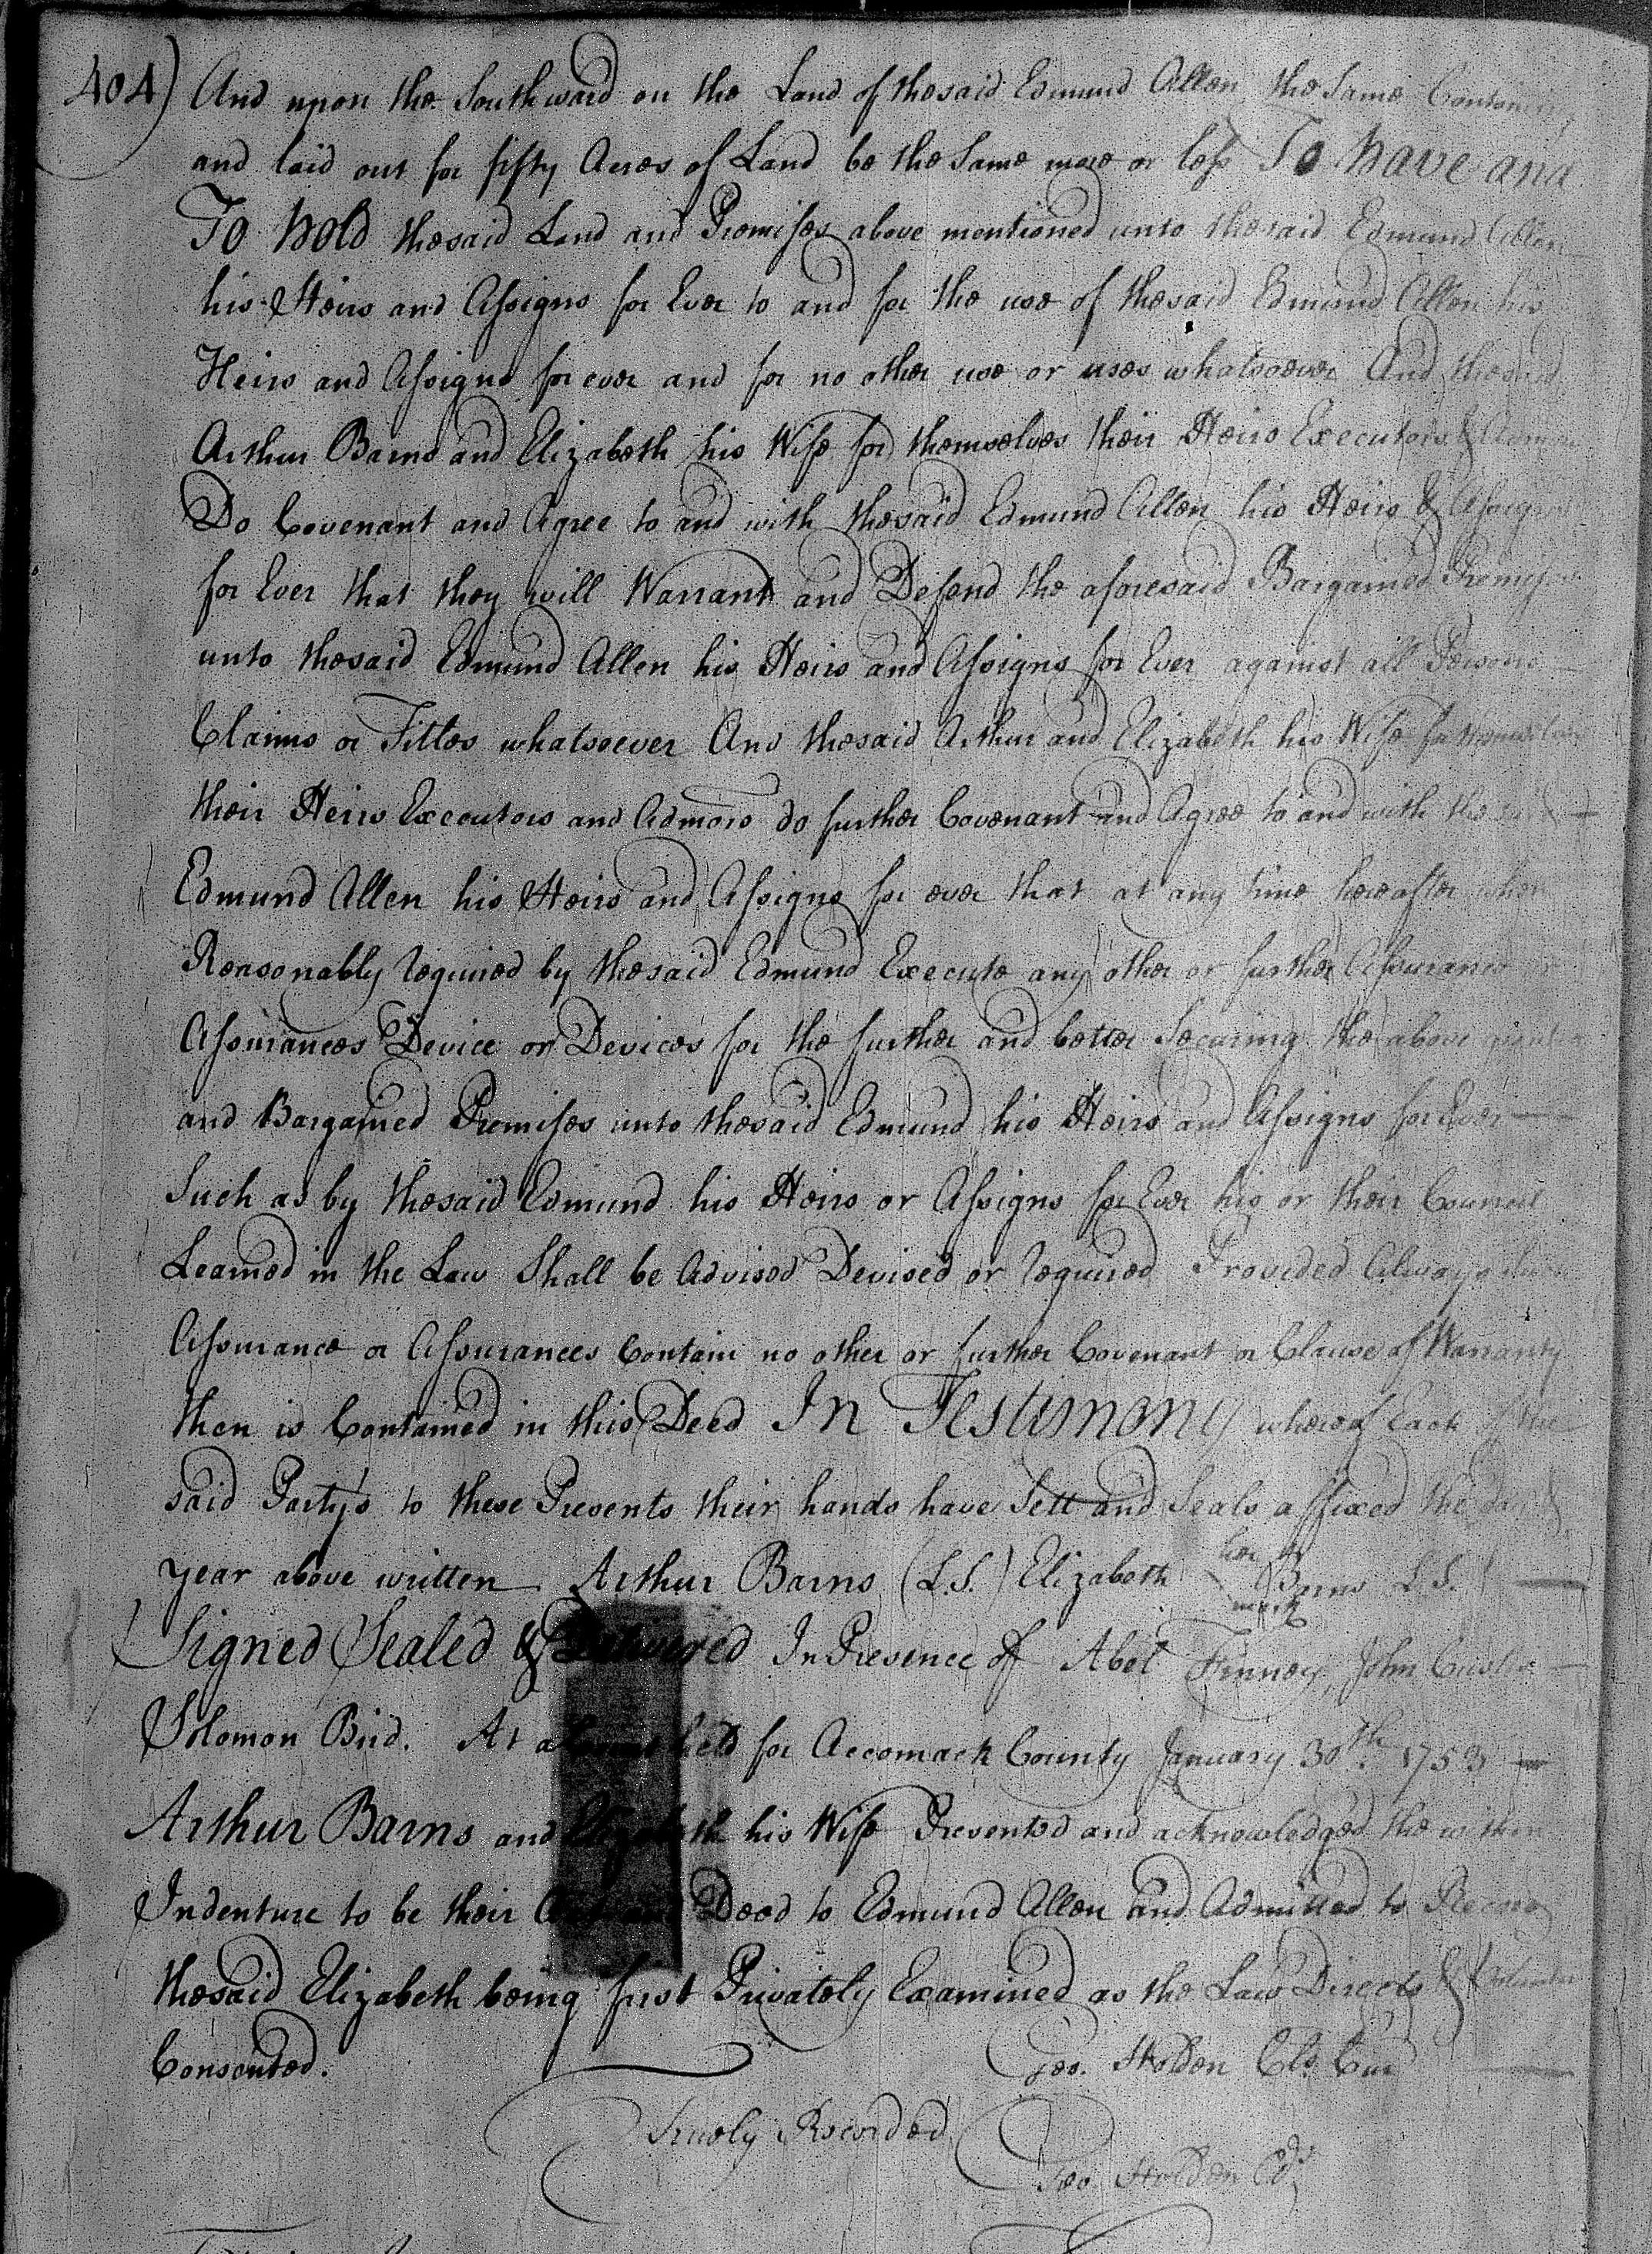 404) And upon the Southward on the Land of thesaid Edmund Allen the Same
and laid out for fifty Acres of Land be the Same more or less To have and
To hold thesaid Land and Premises above mentioned unto thesaid Edmund Allen
his Heirs and Assigns for Ever to and for the use of thesaid Edmund Allen his
Heirs and Assigns for ever and for no other use or uses whatsoever And thesaid
Arthur Barns and Elizabeth his Wife for themselves their Heirs Executors &
Do Covenant and Agree to and with thesaid Edmund Allen his Heirs & Assigns
for Ever that they will Warrant and Defend the aforesaid Bargained Premises
unto thesaid Edmund Allen his Heirs and Assigns for Ever against all Persons
Claims or Tittles whatsoever And thesaid Arthur and Elizabeth his Wife for themselves
their Heirs Executors and Admors do further Covenant and Agree to and with the said
Edmund Allen his Heirs and Assigns for ever that at any time hereafter when
Reasonably required by thesaid Edmund Execute any other or further Assurance or
Assurances Device or Devices for the further and better Securing the above
and Bargained Premises unto thesaid Edmund his Heirs and Assigns for Ever
Such as by thesaid Edmund his Heirs or Assigns for Ever his or their Council
Learned in the Law Shall be Advised Devised or required Provided Always
Assurance or Assurances Contain no other or further Covenant or Clause of Warranty
then is Contained in this Deed In Testimony whereof Each of the
said Party's to these Presents their hands have Sett and Seals affixed the day &
year above written Arthur Barns (L.S.) Elizabeth her mark Barns L.S.
Signed Sealed & Delivered In Presence of Abel Finney, John
Solomon Bird. At a held for Accomack County January 30th. 1753
Arthur Barns and Elizabeth his Wife Presented and acknowledged the within
Indenture to be their Deed to Edmund Allen and Admitted to Record
thesaid Elizabeth being first Privately Examined as the Law Directs &
Consented. Geo. Holden Clo. Cur
Truely Recorded
Geo. Holden